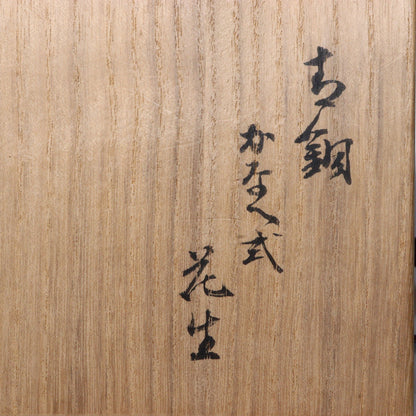 青銅
かなへ式
花生